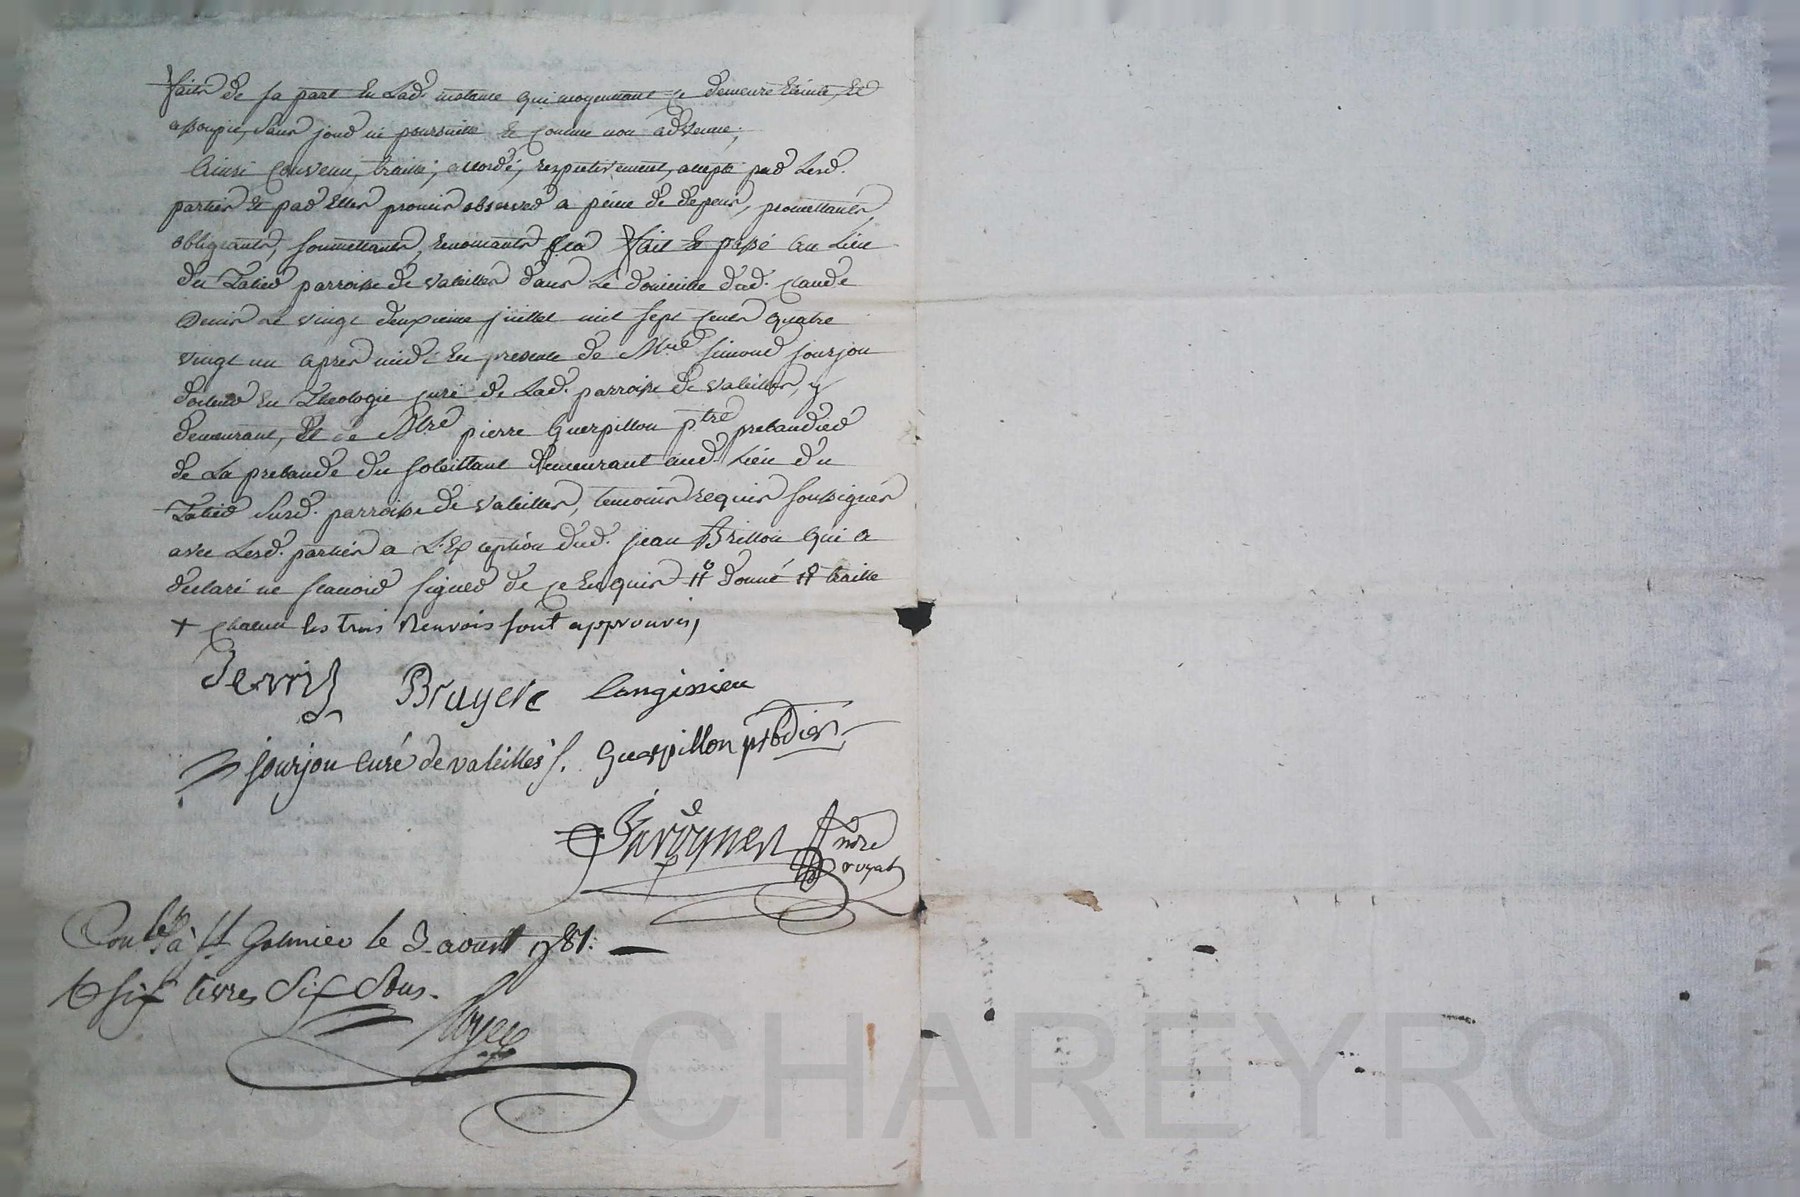 faits de sa part en Lad. instance qui moyennant ce demeure Eteinte, Et
assoupie, sans jour ni poursuitte Et comme non advenue;
Ainsi convenu, traitté, accordé, respectivement, accepté par Lesd.
parties Et par Elles promis observer a peine de depens, promettants,
obligeants, soummettants, renoncants &ca fait Et passé au Lieu
du parroisse de valeilles dans Le domicile dud. claude
Denis Le vingt deuxieme juillet mil sept cents quatre
vingt un apres midi En presence de Mre simond jourjon
docteur En Theologie curé de Lad. parroisse de valeilles, y
demeurant, Et de Mtre pierre Guerpillon ptre prebandier
de La prebande du soleillant demeurant aud. Lieu du
susd. parroisse de valeilles, temoins requis soussignés
avec Lesd. parties a L'Exception dud. jean Brillon qui a
declaré ne scavoir signer de ce Enquis # donné # traitte
+ chacun les trois Renvois sont approuvés,
Denis Bruyere Langissieu
jourjon curé de valeilles. Guerpillon prbdier
ndre
royal
Conlé à St Galmier le 3 aoust 1781.
R six livres six sous.